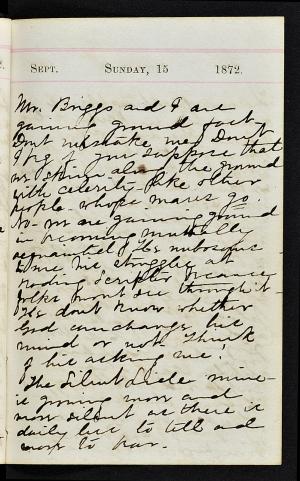 SEPT. SUNDAY, 15 1872.
Mr. Briggs and I are
gaining ground fast.
Dont mistake me. Dont
I beg of you suppose that
we spring along the ground
with celerity like other
people whose mares go.
No - we are gaining ground
in becoming mutually
acquainted
some. We struggle at
reading Scripture because
folks wont see through it.
He dont know whether
God can change his
mind or not. Think
of his asking me!
The Silent Side mine
is growing more and
more silent as there is
daily less to tell and
more to bear.